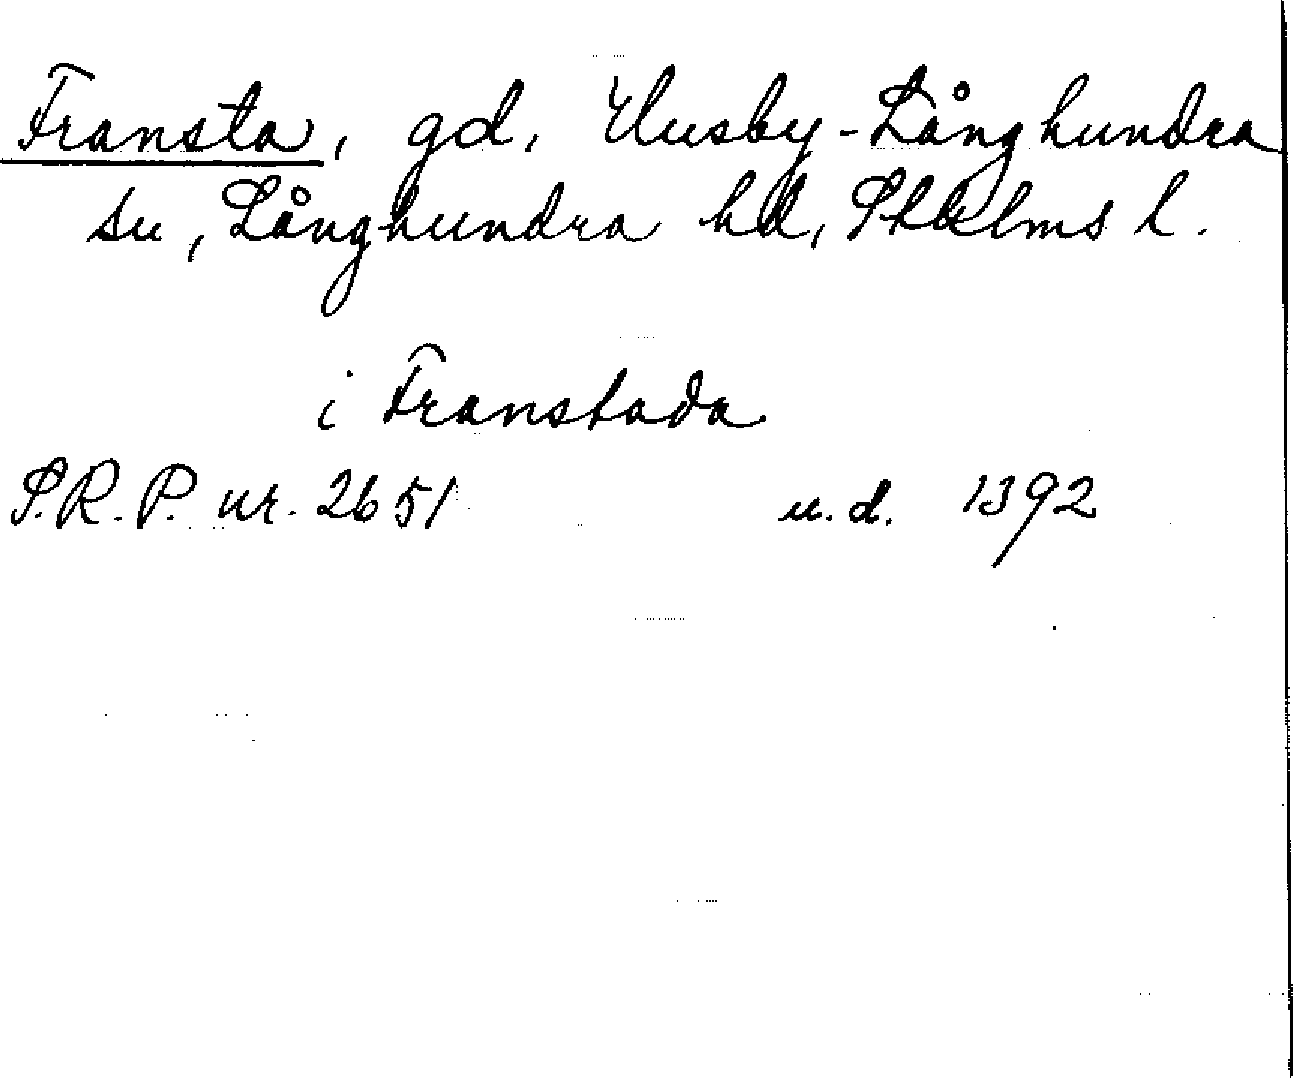 Fransta, gd, Husby-Långhundra
sn, Långhundra hd, Sthlms l.
i Franstada
S.R.P. nr. 2651 u.d. 1392